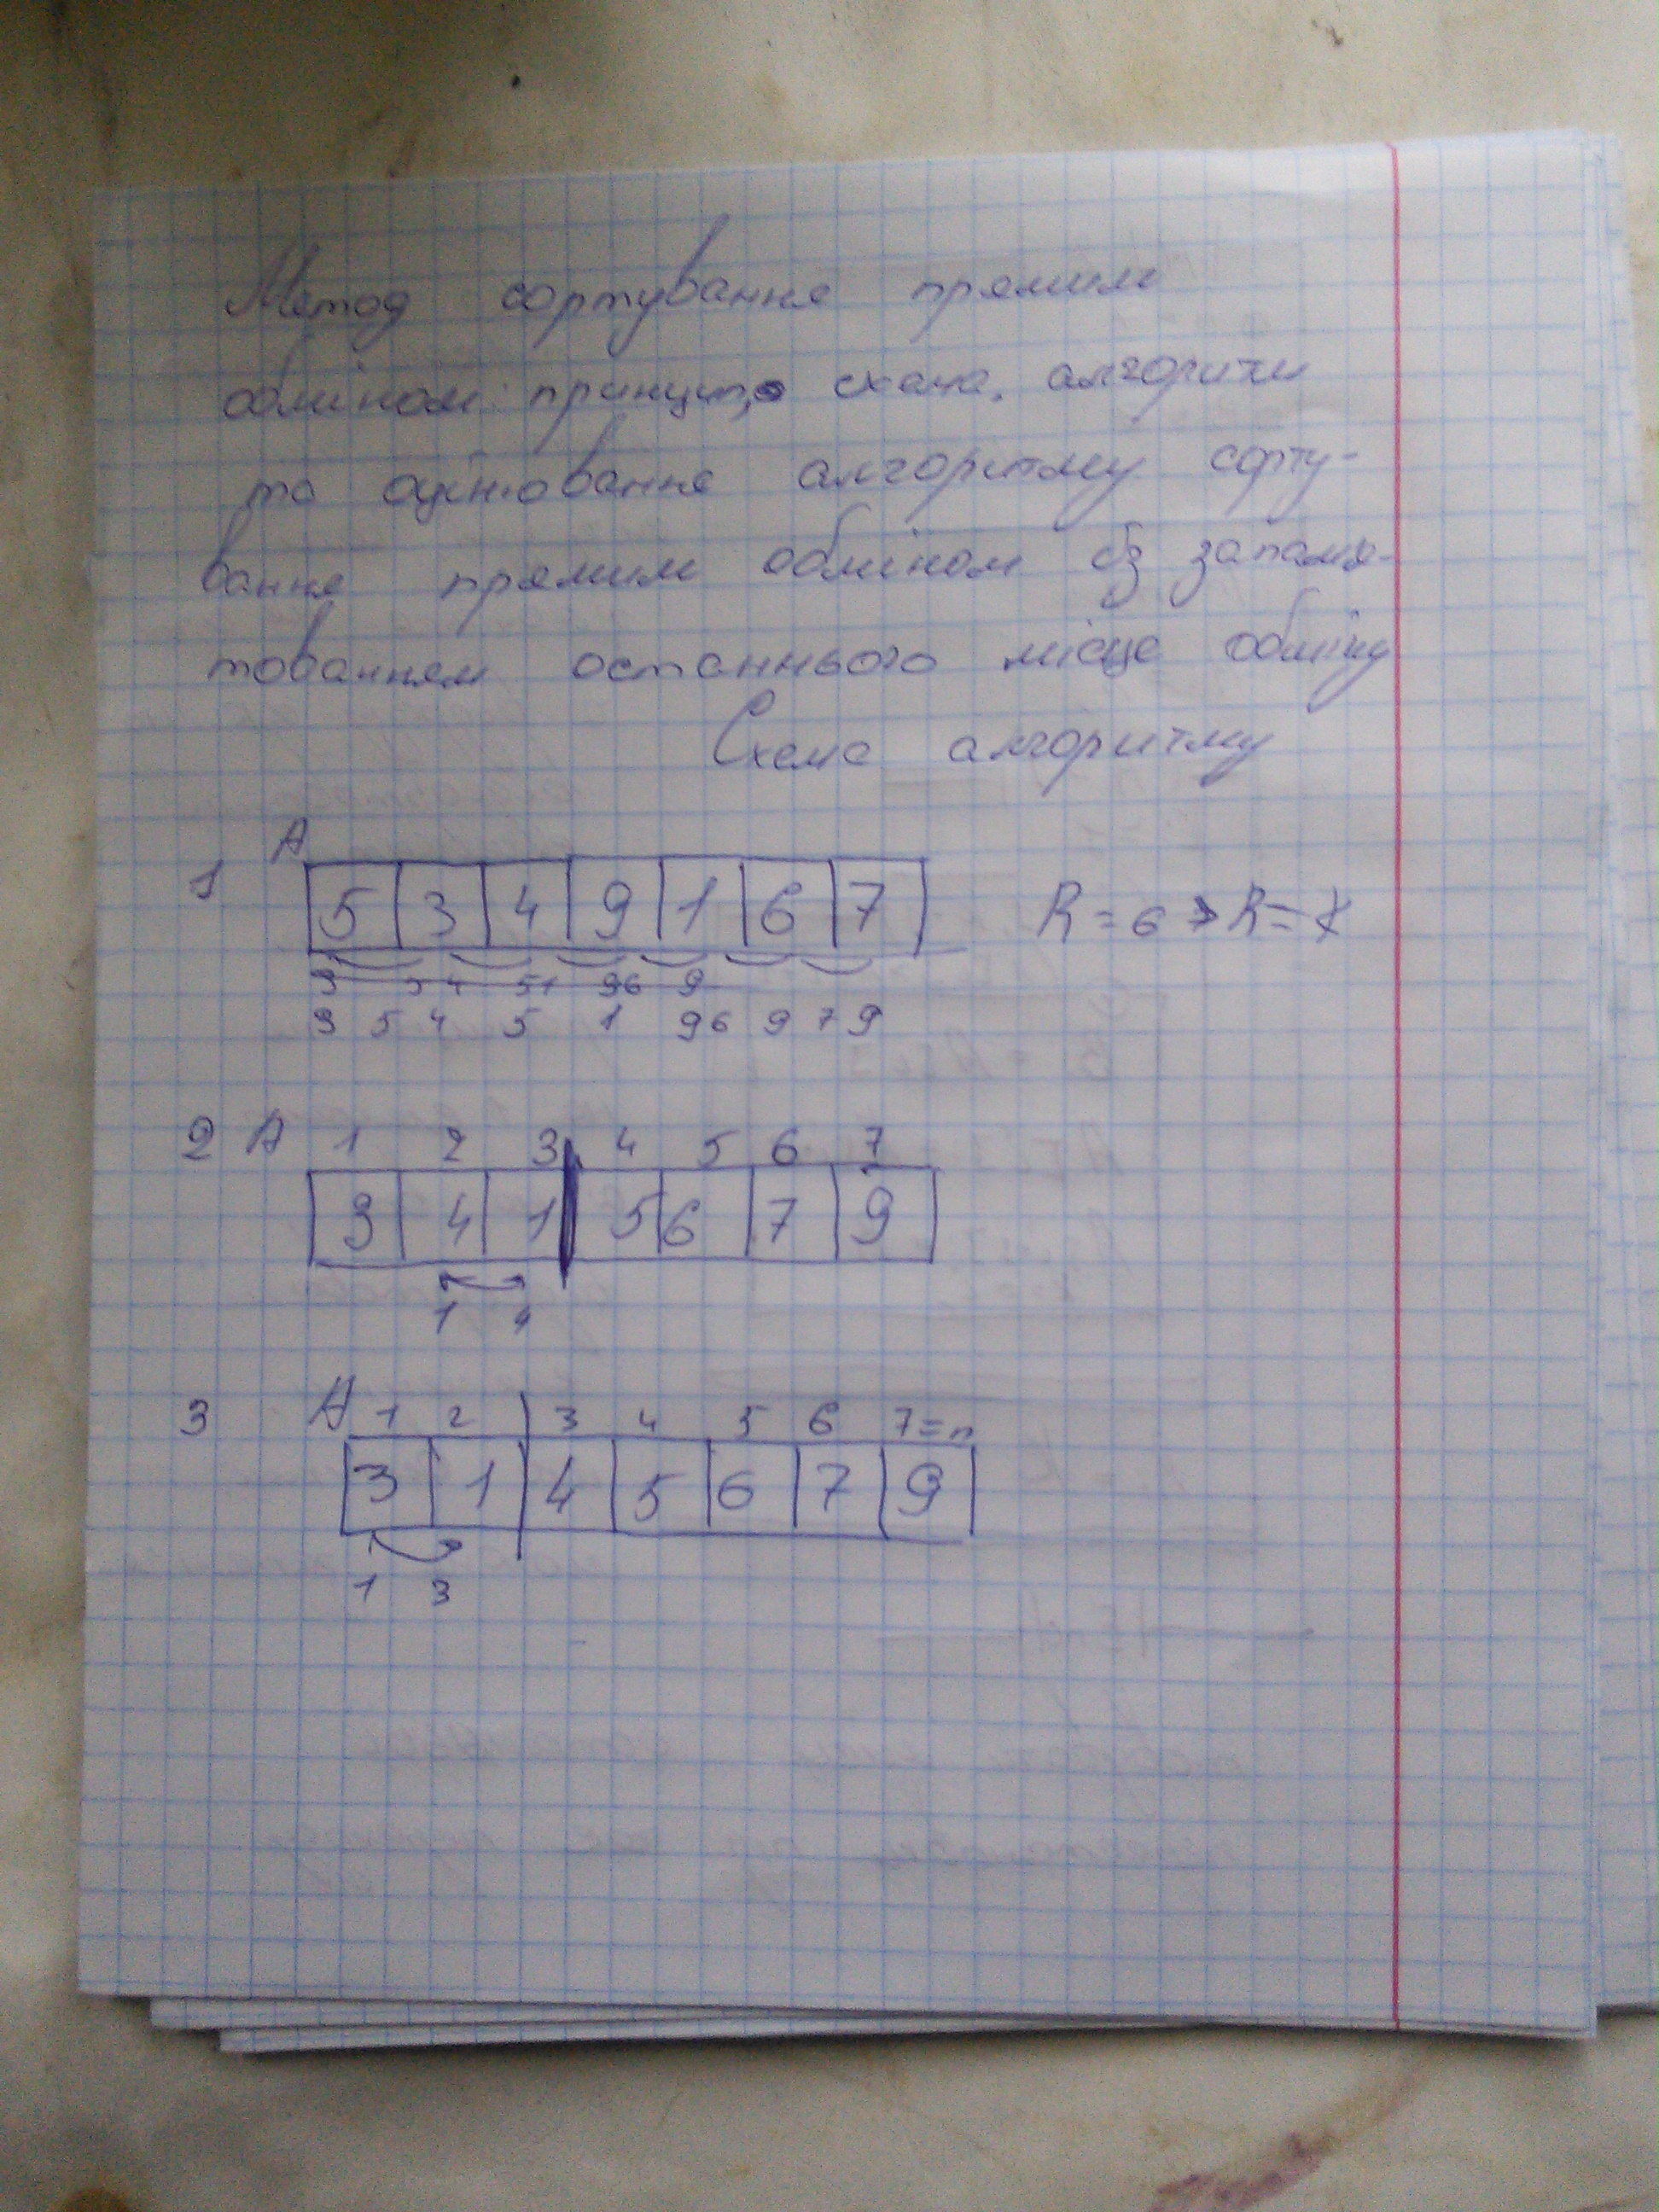 Метод сортування прямим
обміном: принцип, схема, алгоритм
та оцінювання алгоритму сорту-
вання прямим обміном із запамя-
тованням останнього місця обміну
Схема алгоритму
A
1 5 3 4 9 1 6 7 R = 6 > R =
3 5 4 5 1 9 6 9 7 9
2 A 1 2 3 4 5 6 7
3 4 1 5 6 7 9
1 4
3 A 1 2 3 4 5 6 7=n
3 1 4 5 6 7 9
1 3